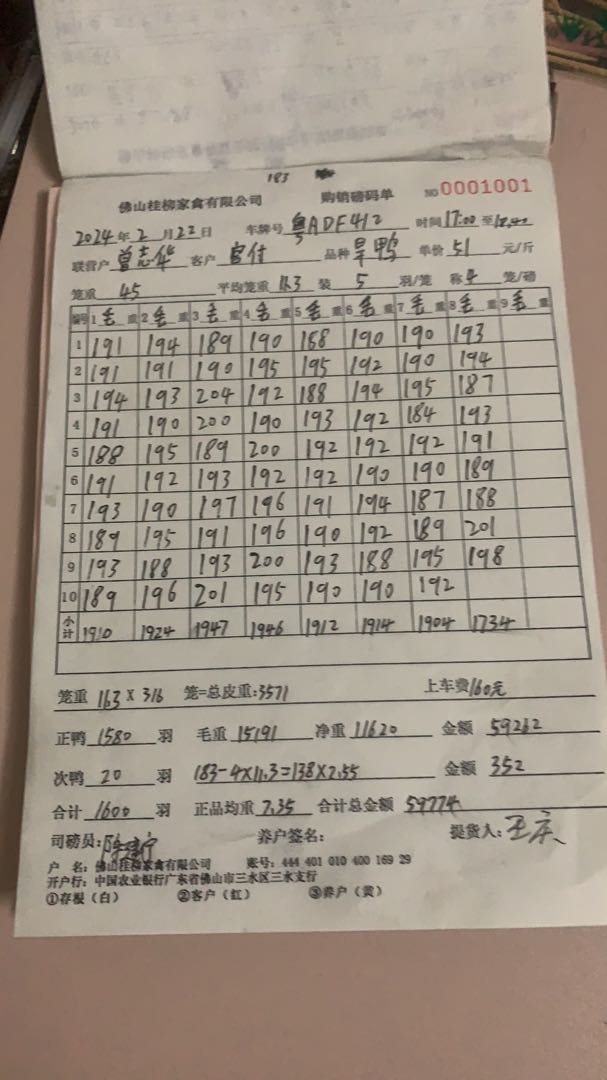 183
佛山桂柳家禽有限公司 购销磅码单 NO 0001001
2024年2月22日 车牌号 粤ADF412 时间17:00至
联营户 曾志华 客户 官付 品种 旱鸭 单价 51 元/斤
笼重 45 平均笼重 11.3 装 5 羽/笼 称 4 笼/磅
编号 1 毛重 2 毛重 3 毛重 4 毛重 5 毛重 6 毛重 7 毛重 8 毛重 9 毛重
1 191 194 189 190 188 190 190 193
2 191 191 190 195 195 192 190 194
3 194 193 204 192 188 194 195 187
4 191 190 200 190 193 192 184 193
5 188 195 189 200 192 192 192 191
6 191 192 193 192 192 190 190 189
7 193 190 197 196 191 194 187 188
8 189 195 191 196 190 192 189 201
9 193 188 193 200 193 188 195 198
10 189 196 201 195 190 190 192
小计 1910 1924 1947 1946 1912 1914 1904 1734
笼重 11.3 X 316 笼=总皮重:3571 上车费160元
正鸭 1580 羽 毛重 15191 净重 11620 金额 59262
次鸭 20 羽 183-4X11.3=138X2.55 金额 352
合计 1600 羽 正品均重 7.35 合计总金额 59774
司磅员: 养户签名: 提货人: 王庆
户 名: 佛山桂柳家禽有限公司 账号: 444 401 010 400 169 29
开户行: 中国农业银行广东省佛山市三水区三水支行
①存根(白) ②客户(红) ③养户(黄)